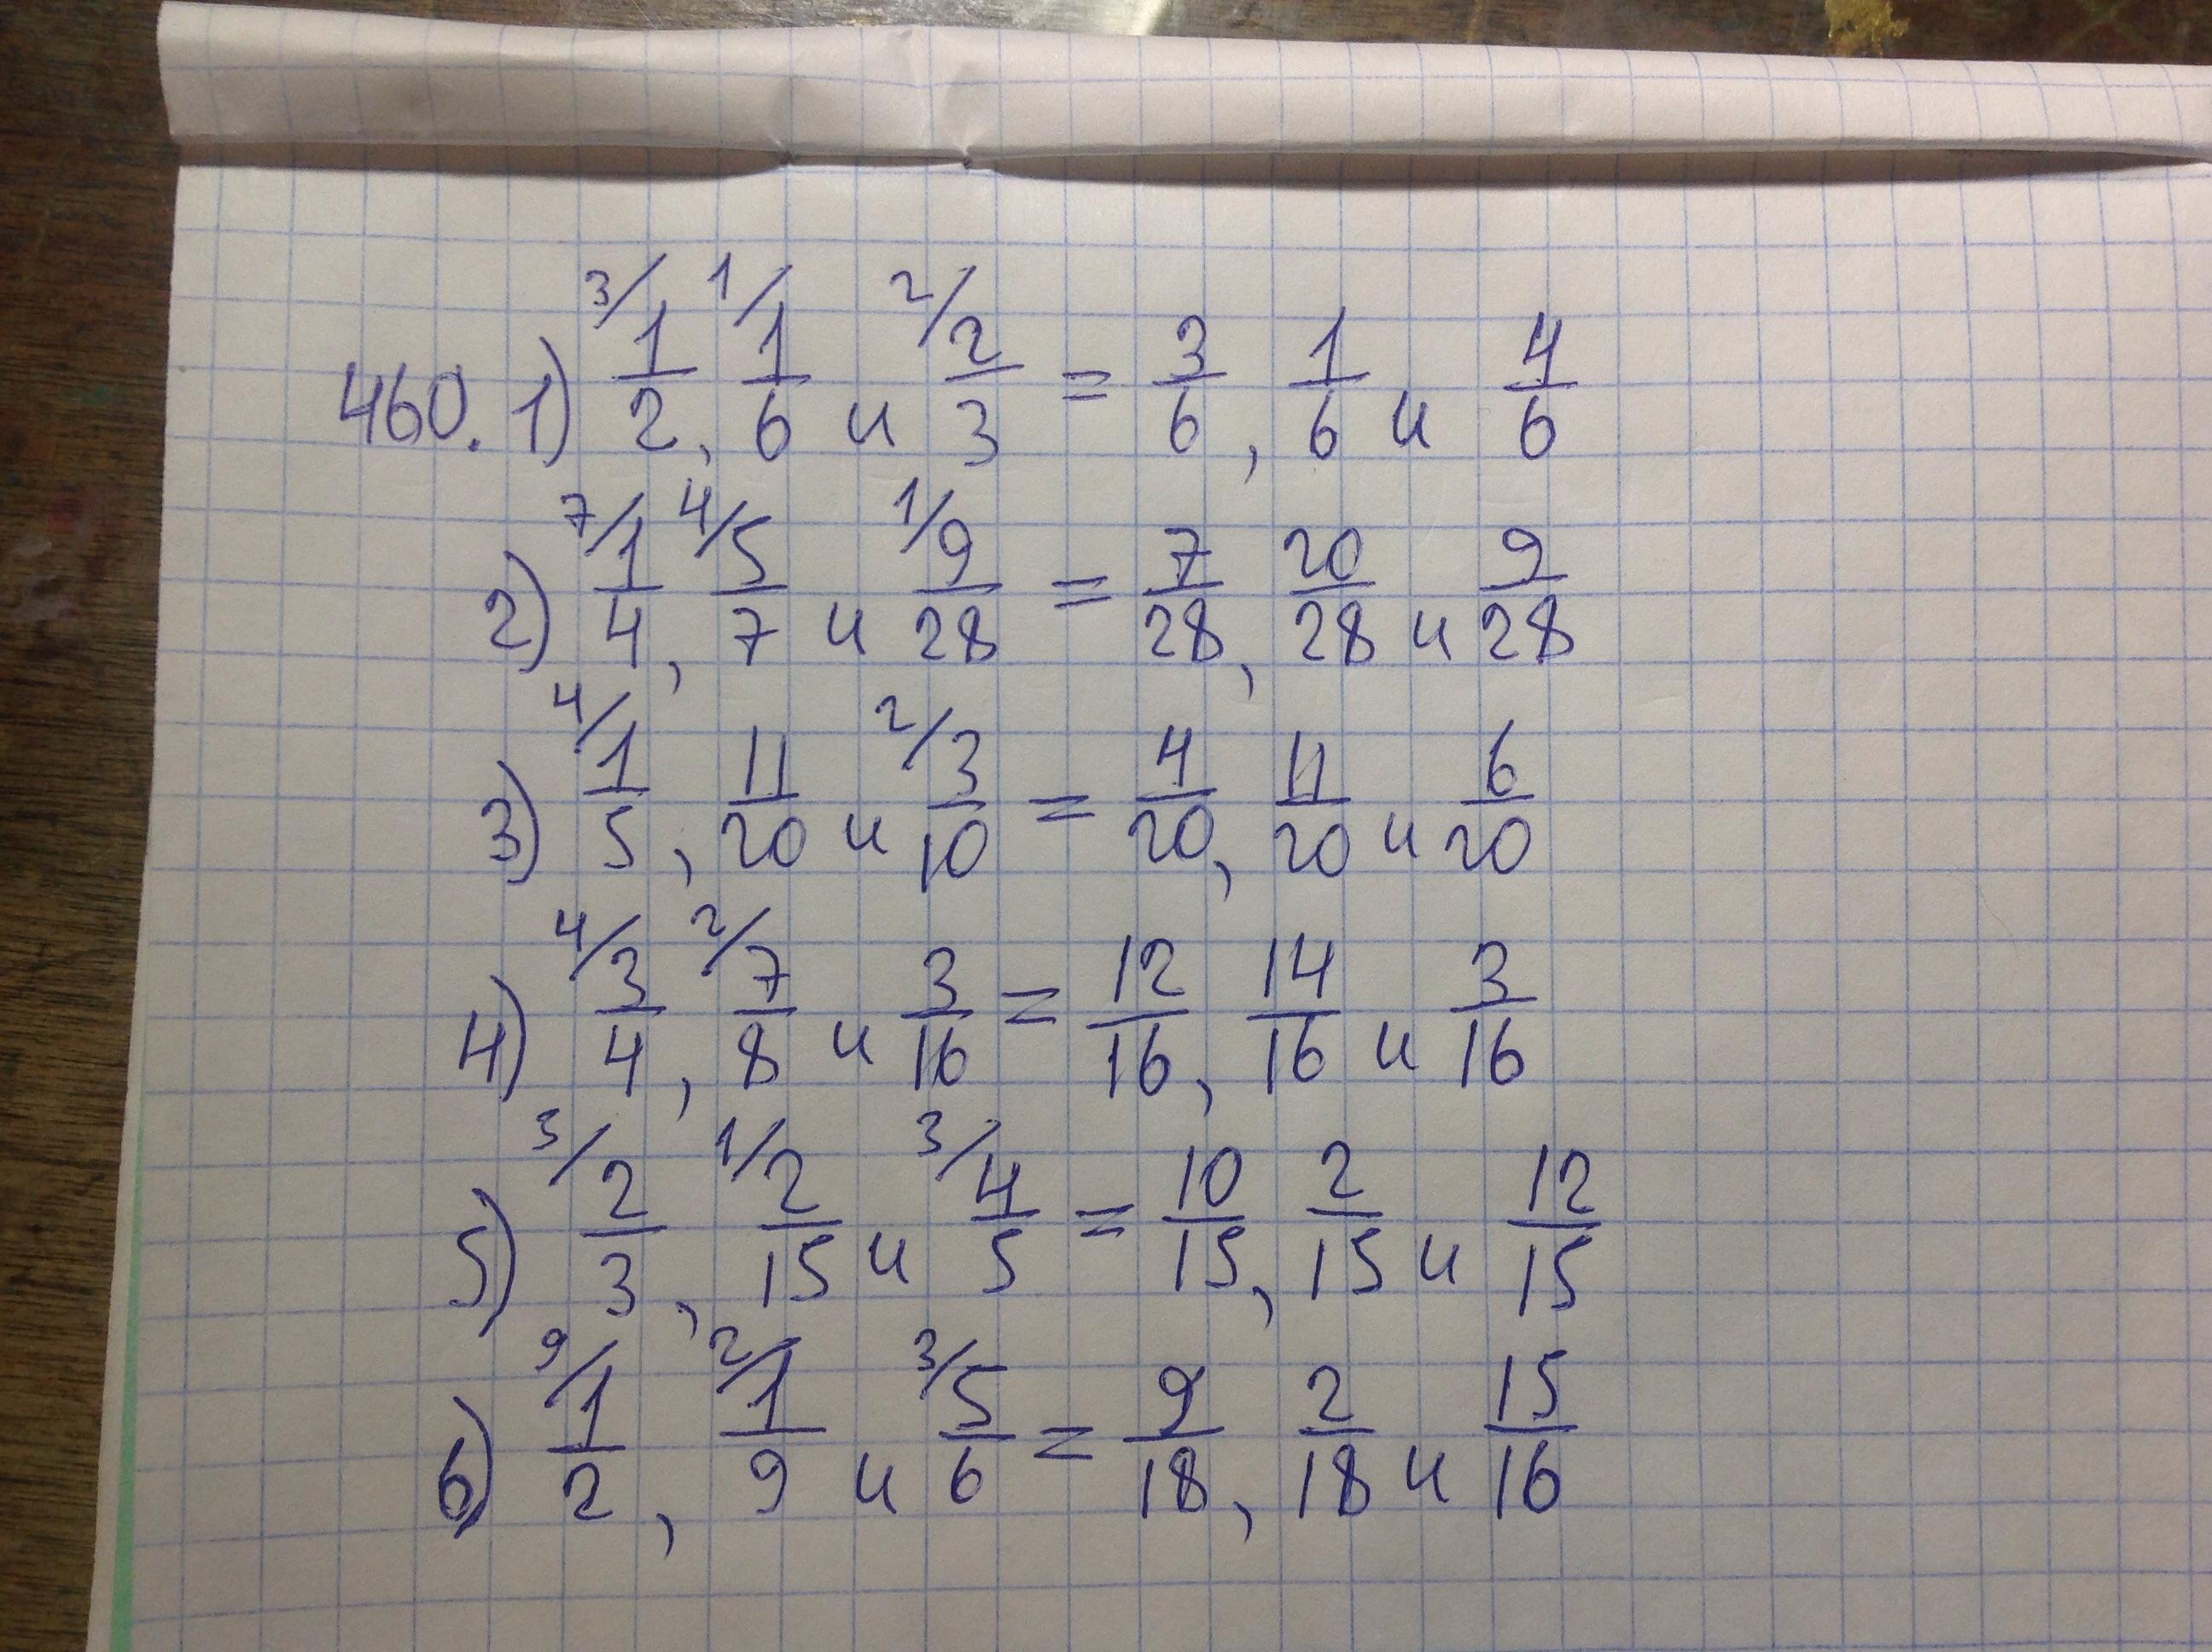 460. 1) 3/ 1/2, 1/ 1/6 и 2/ 2/3 = 3/6, 1/6 и 4/6
2) 7/ 1/4, 4/ 5/7 и 1/ 9/28 = 7/28, 20/28 и 9/28
3) 4/ 1/5, 11/20 и 2/ 3/10 = 4/20, 11/20 и 6/20
4) 4/ 3/4, 2/ 7/8 и 3/16 = 12/16, 14/16 и 3/16
5) 3/ 2/3, 1/ 2/15 и 3/ 4/5 = 10/15, 2/15 и 12/15
6) 9/ 1/2, 2/ 1/9 и 3/ 5/6 = 9/18, 2/18 и 15/16